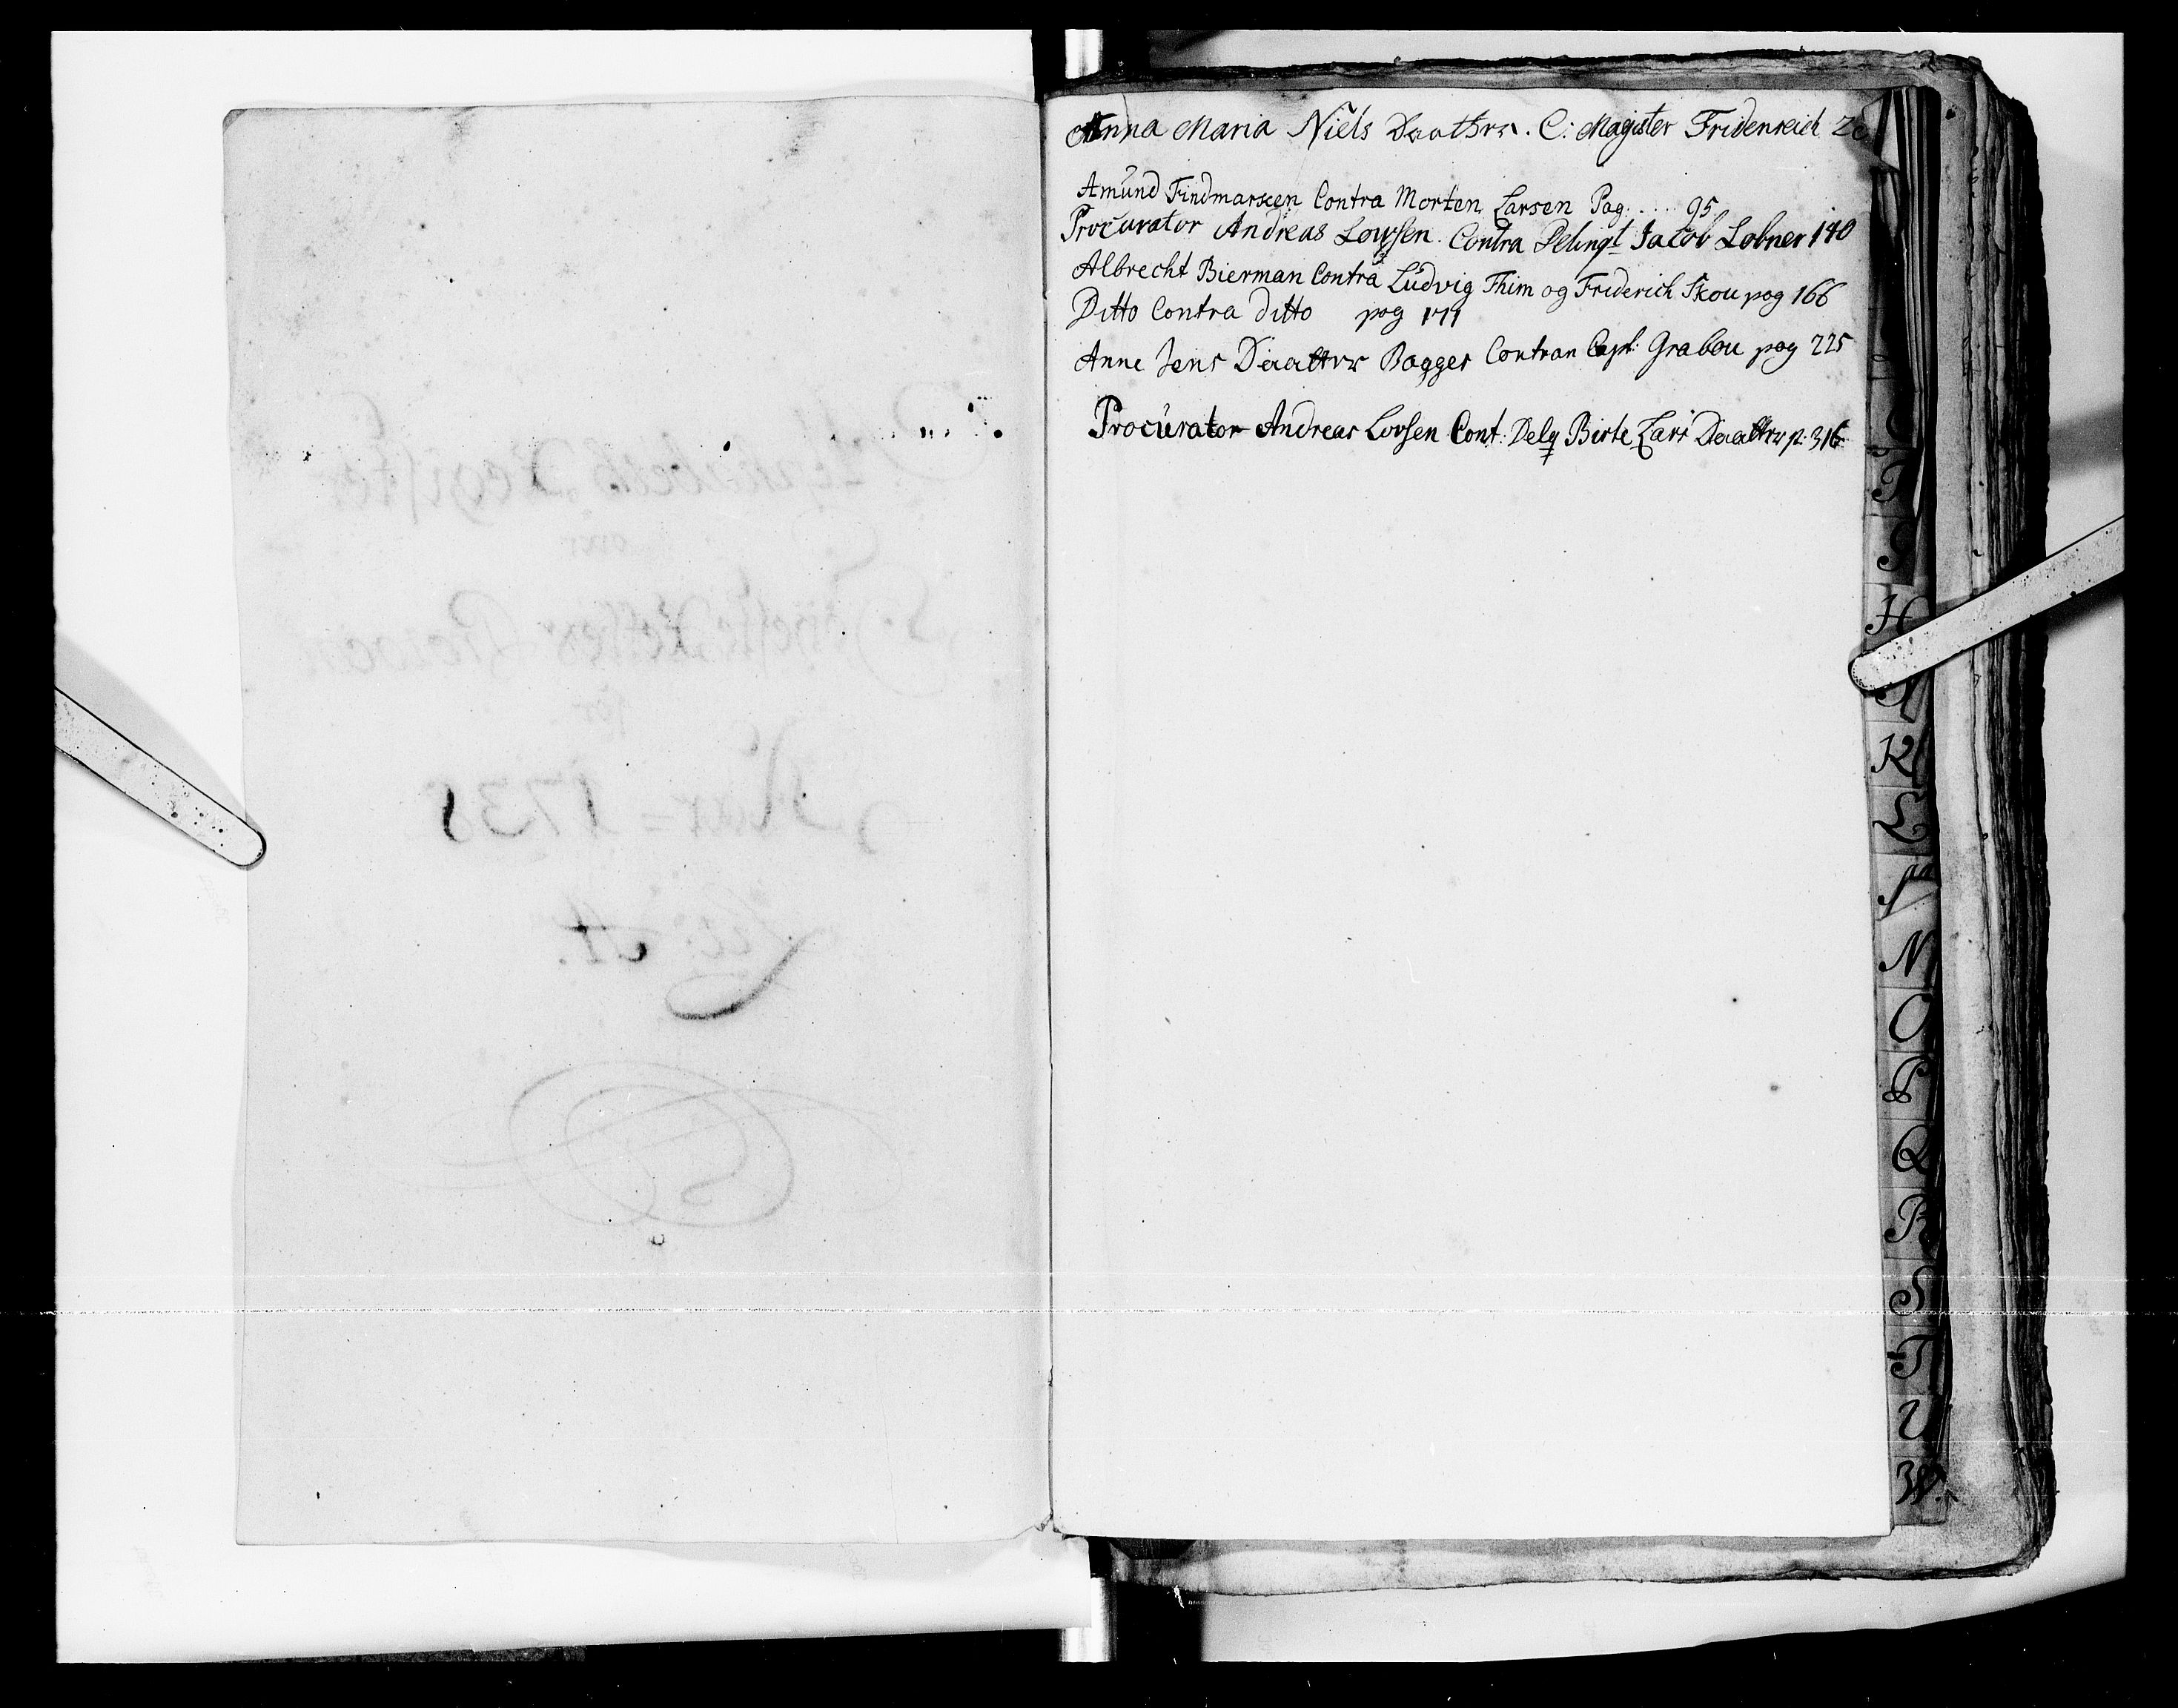 Anna Maria Niels Daatter. C: Magister Fridenreich
Amund Findmarken Contra Morten Larsen Pag..... 95
Procurator Andreas Lovsen. Contra Delinqt Jacob Lobner 140
Albrecht Bierman Contra Ludvig Thim og Friderich Skou pag 166
Ditto Contra ditto pag 171
Anne Jens Daatter Bagges Contran Capt: Grabou pag 225
Procurator Andreas Lovsen Cont: Delq Birte Lars Daatter p: 316
H
K
L
N
O
P
Q
R
S
T
W.